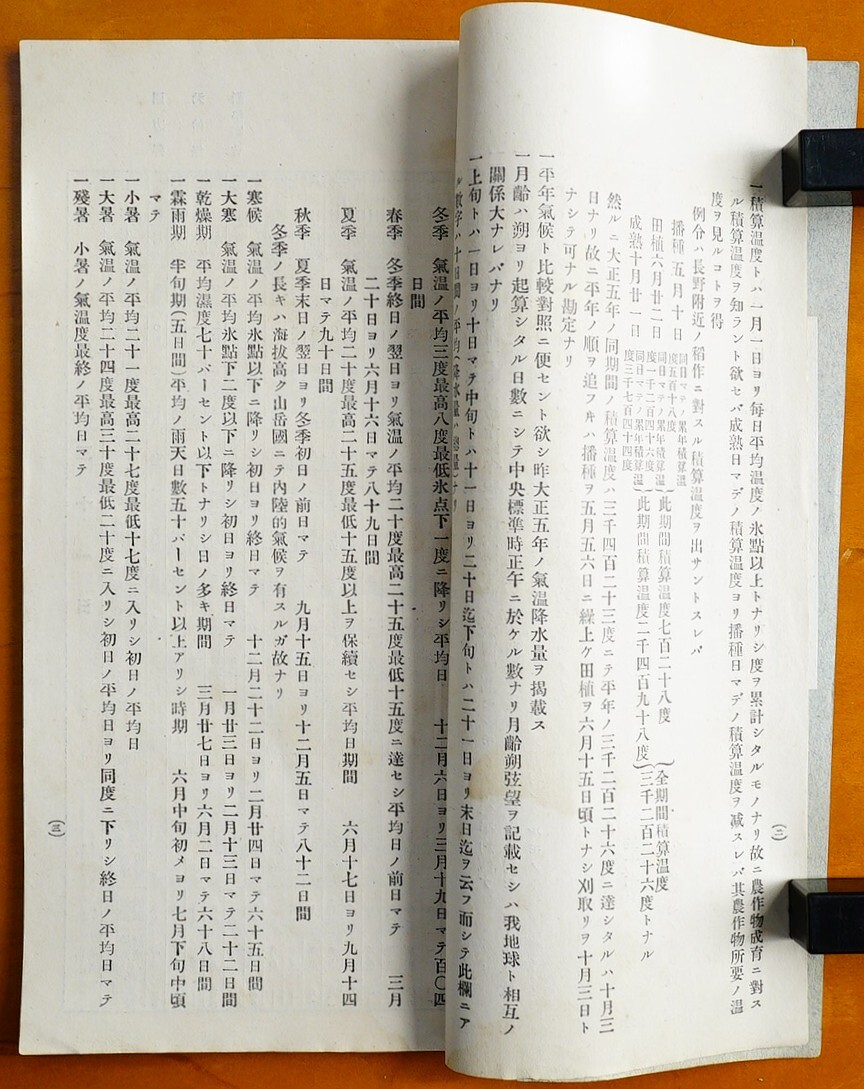 一積算溫度トハ一月一日ヨリ每日平均溫度ノ氷點以上トナリシ度ヲ累計シタルモノナリ故ニ農作物成育ニ對ス
ル積算溫度ヲ知ラント欲セバ成熟日マデノ積算溫度ヨリ播種日マデノ積算溫度ヲ減スレバ其農作物所要ノ溫
度ヲ見ルコトヲ得
例分ハ長野附近ノ稻作ニ對スル積算溫度ヲ出サントスレバ
播種五月十日 同日マテノ累年積算溫度五百十八度
田植六月廿二日 同日マテノ累年積算溫度一千二百四十六度 (此期間積算溫度七百二十八度
成熟十月廿一日 同日マテノ累年積算溫度三千七百四十四度 (此期間積算溫度二千四百九十八度
(全期間積算溫度
三千二百二十六度トナル
然ルニ大正五年ノ同期間ノ積算溫度ハ三千四百二十三度ニテ平年ノ三千二百二十六度ニ達シタルハ十月三
日ナリ故ニ平年ノ順ヲ追フ片ハ播種ヲ五月五六日ニ繰上ケ田植ヲ六月十五日頃トナシ刈取リヲ十月三日ト
ナシテ可ナル勘定ナリ
一平年氣候ト比較對照ニ便セント欲シ昨大正五年ノ氣溫降水量ヲ揭載ス
一月齡ハ朔ヨリ起算シタル日數ニシテ中央標準時正午ニ於ケル數ナリ月齡朔弦望ヲ記載セシハ我地球ト相互ノ
關係大ナレバナリ
一上旬トハ一日ヨリ十日マテ中旬トハ十一日ヨリ二十日迄下旬トハ二十一日ヨリ末日迄ヲ云フ而シテ此欄ニア
ル數字ハ十日間ノ平均(降水量ハ總量)ナリ
(二)
冬季 氣溫ノ平均三度最高八度最低氷点下一度ニ降リシ平均日 十二月六日ヨリ三月十九日マテ百〇四
日間
春季 冬季終日ノ翌日ヨリ氣溫ノ平均二十度最高二十五度最低十五度ニ達セシ平均日ノ前日マテ 三月
二十日ヨリ六月十六日マテ八十九日間
夏季 氣溫ノ平均二十度最高二十五度最低十五度以上ヲ保續セシ平均日期間 六月十七日ヨリ九月十四
日マテ九十日間
秋季 夏季末日ノ翌日ヨリ冬季初日ノ前日マテ 九月十五日ヨリ十二月五日マテ八十二日間
冬季ノ長キハ海拔高ク山岳國ニテ內陸的氣候ヲ有スルガ故ナリ
一寒候 氣溫ノ平均氷點以下ニ降リシ初日ヨリ終日マテ 十二月二十二日ヨリ二月廿四日マテ六十五日間
一大寒 氣溫ノ平均氷點下二度以下ニ降リシ初日ヨリ終日マテ 一月廿三日ヨリ二月十三日マテ二十二日間
一乾燥期 平均濕度七十パーセント以下トナリシ日ノ多キ期間 三月廿七日ヨリ六月二日マテ六十八日間
一霖雨期 半旬期(五日間)平均ノ雨天日數五十パーセント以上アリシ時期 六月中旬初メヨリ七月下旬中頃
マテ
一小暑 氣溫ノ平均二十一度最高二十七度最低十七度ニ入リシ初日ノ平均日
一大暑 氣溫ノ平均二十四度最高三十度最低二十度ニ入リシ初日ノ平均日ヨリ同度ニ下リシ終日ノ平均日マテ
一殘暑 小暑ノ氣溫度最終ノ平均日マテ
(三)